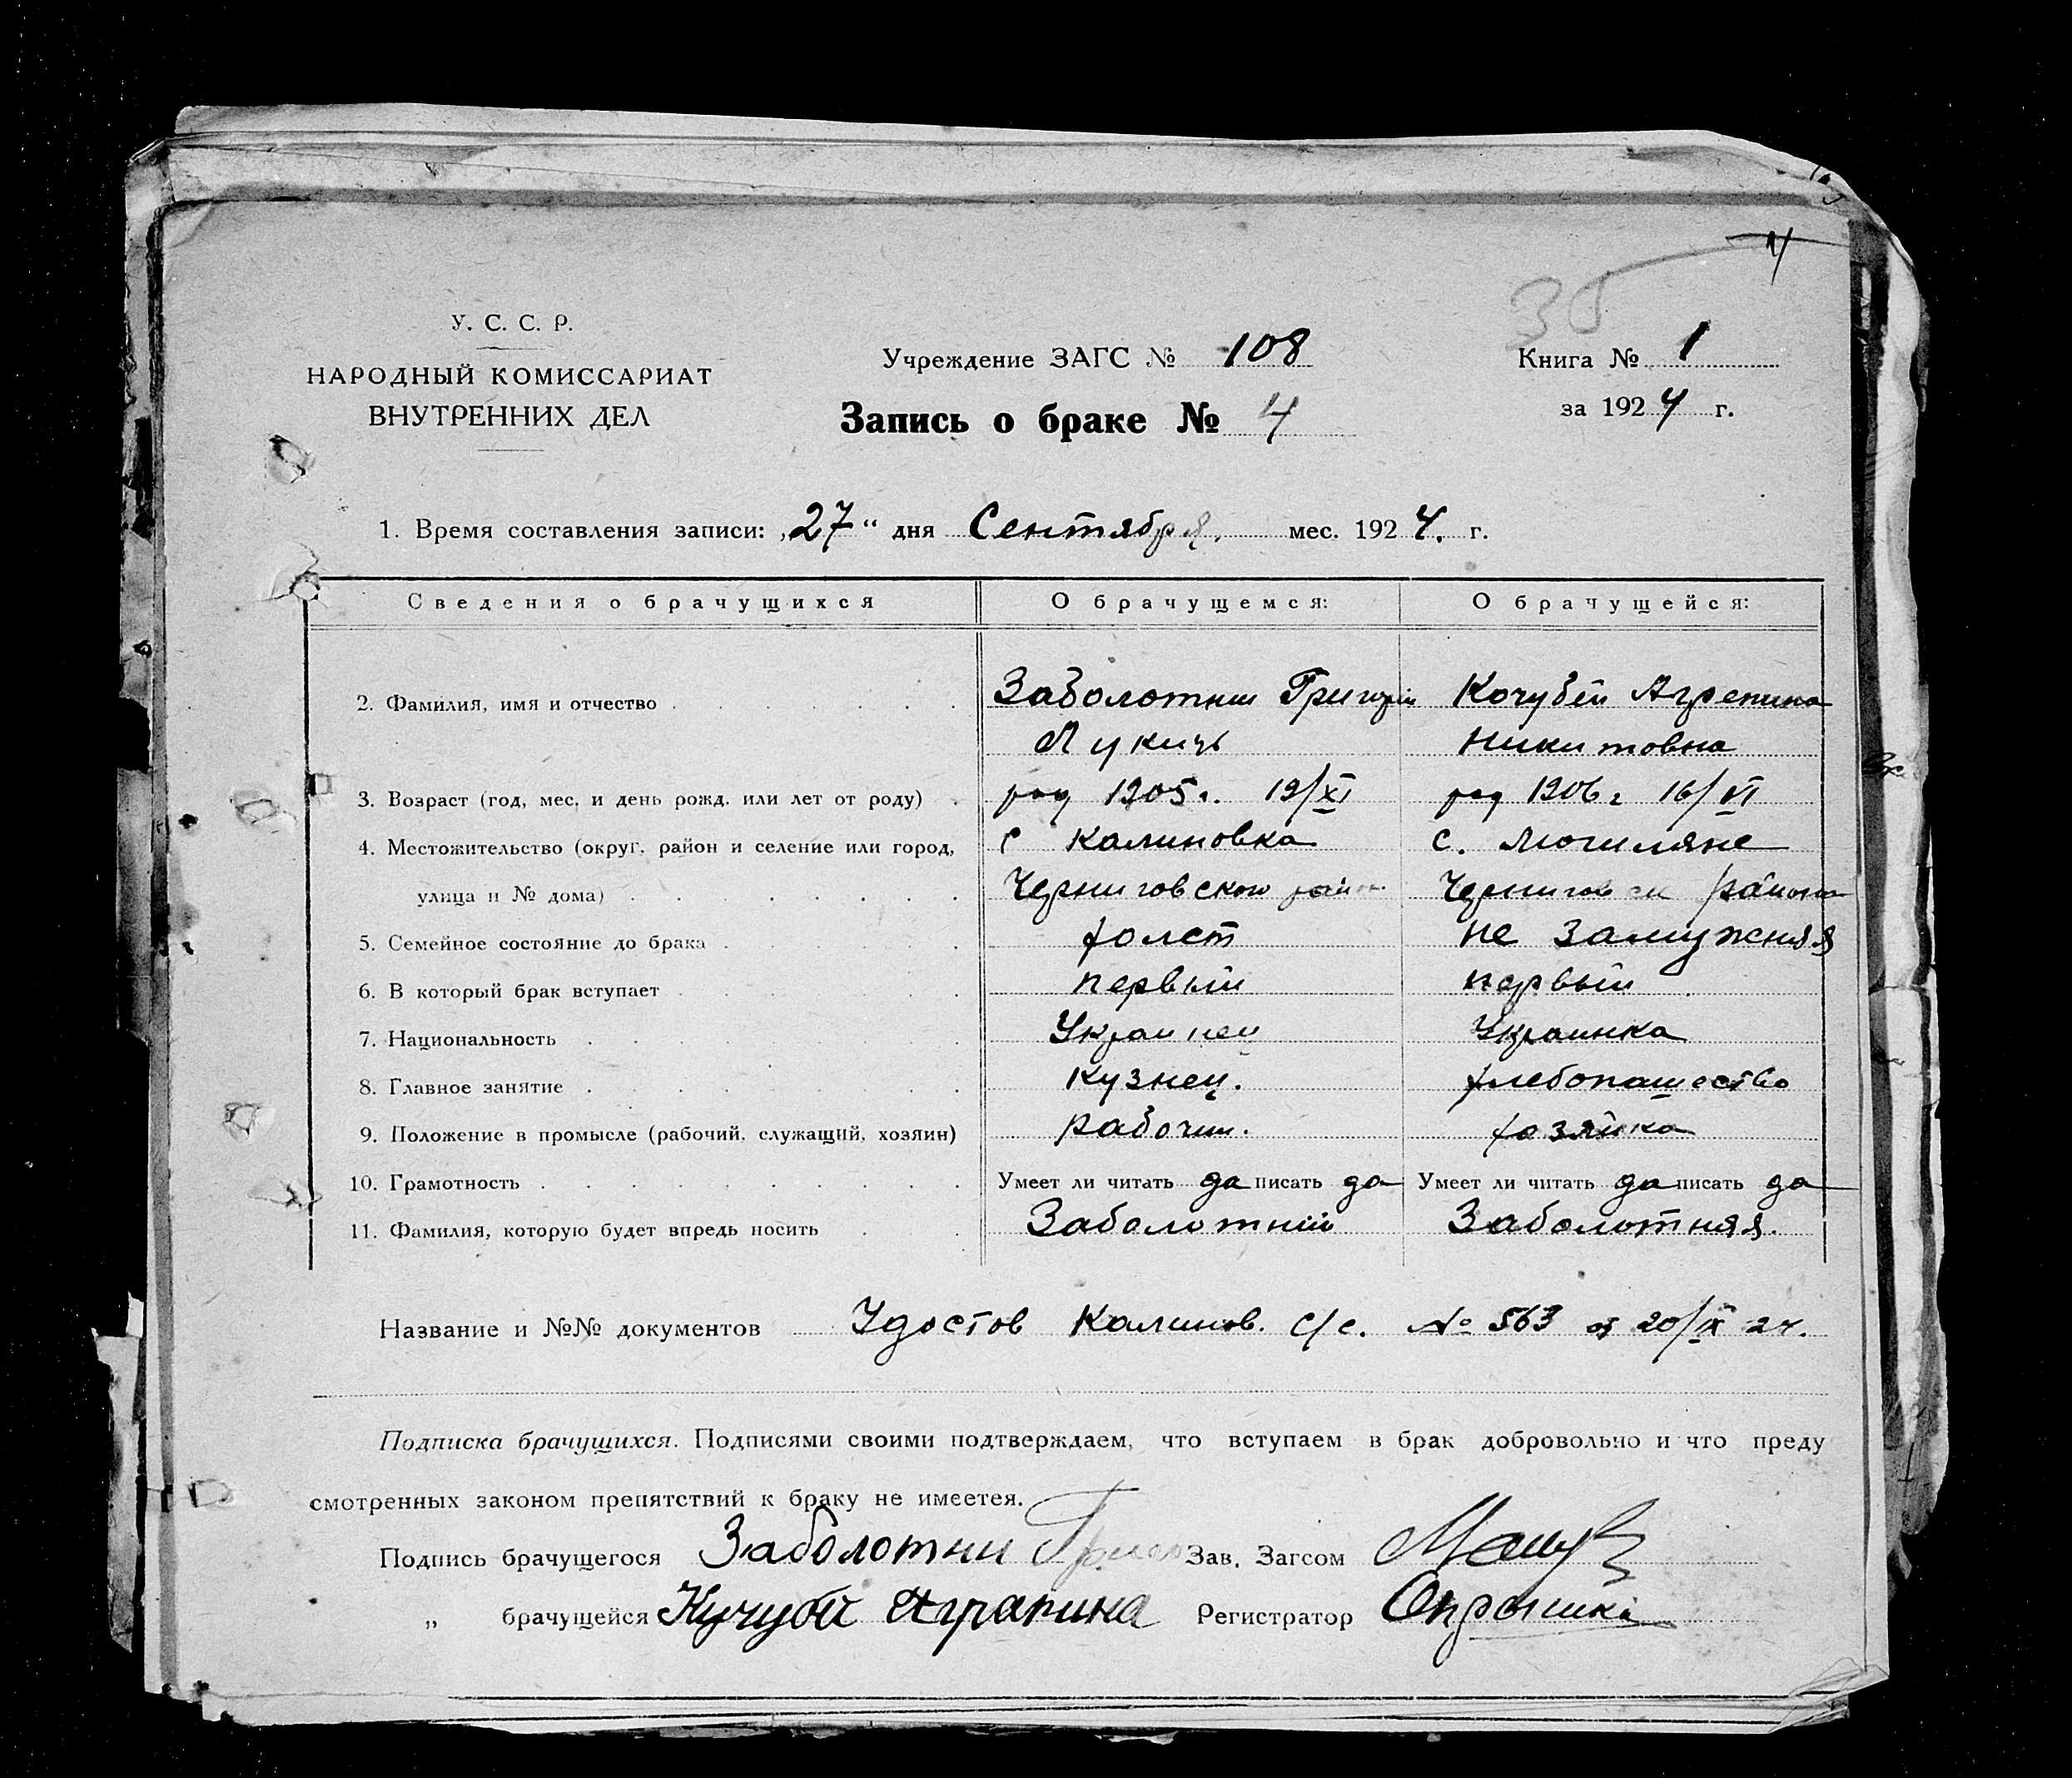 4
35
У. С. С. Р.
НАРОДНЫЙ КОМИССАРИАТ
ВНУТРЕННИХ ДЕЛ
Учреждение ЗАГС № 108
Запись о браке № 4
Книга № 1
за 1924 г.
1. Время составления записи: „27" дня Сентября. мес. 1924. г.
Сведения о брачущихся О брачущемся: О брачущейся:
2. Фамилия, имя и отчество Заболотний Григорій Кочубей Агрепина
Лукичь Никитовна
3. Возраст (год, мес. и день рожд. или лет от роду) род 1905 г. 19/XI род 1906 г 16/VI
4. Местожительство (округ, район и селение или город, с Калиновка с. Могиляне
улица и № дома) Черниговского район Черниговск района
5. Семейное состояние до брака холст не замужняя
6. В который брак вступает первый первый
7. Национальность Украинец Украинка
8. Главное занятие кузнец. хлебопашество
9. Положение в промысле (рабочий, служащий, хозяин) рабочий. хозяйка
10. Грамотность Умеет ли читать да писать да Умеет ли читать да писать да
11. Фамилия, которую будет впредь носить Заболотний Заболотняя.
Название и №№ документов Удостов Калинов. с/с. № 563 от 20/IX 24.
Подписка брачущихся. Подписями своими подтверждаем, что вступаем в брак добровольно и что преду
смотренных законом препятствий к браку не имеетея.
Подпись брачущегося Заболотни Григо Зав. Загсом
„ брачущейся Кучубй Аграпина Регистратор